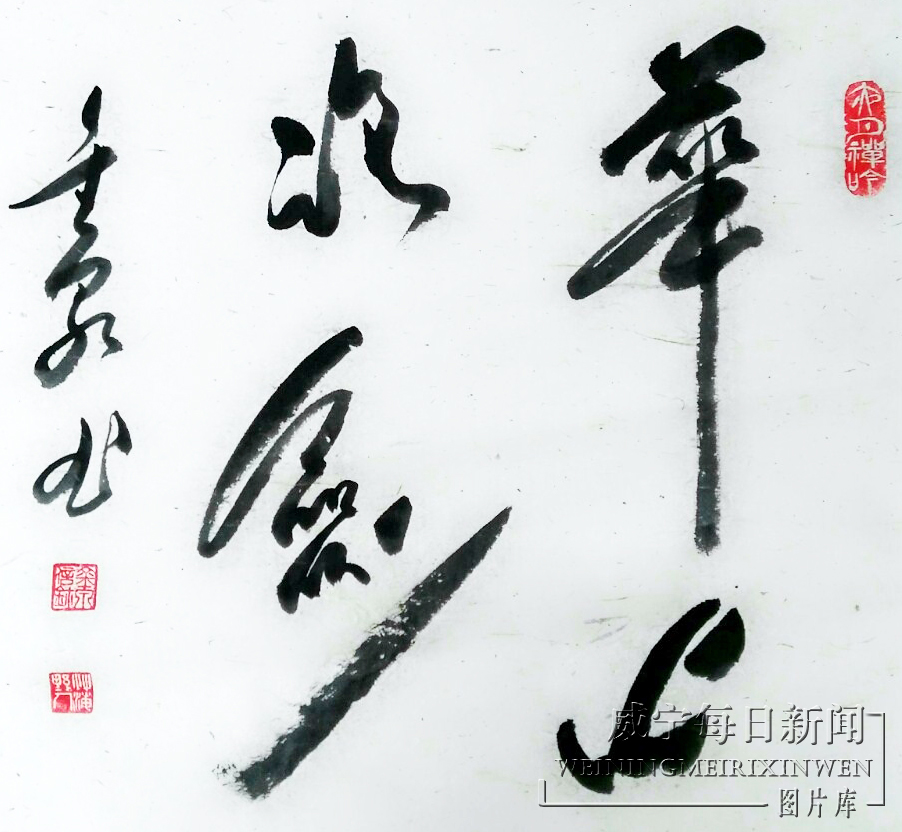 華山
論劍
重泉书
威宁每日新闻
WEININGMEIRIXINWEN
图片库